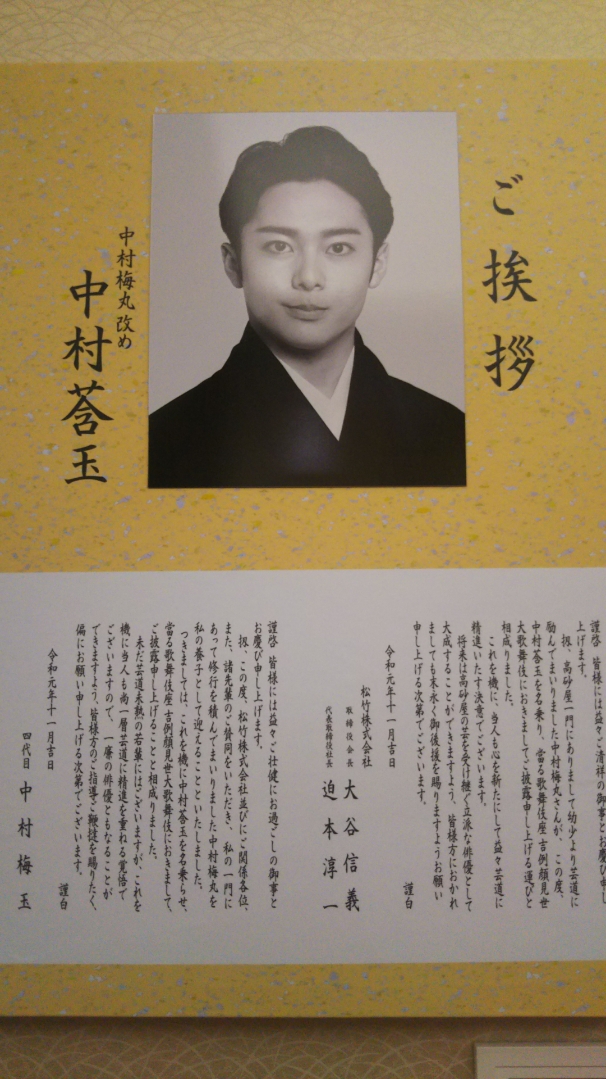 ご挨拶
中村梅丸改め
中村莟玉
謹啓 皆様には益々ご清祥の御事とお慶び申し
上げます。
扨、高砂屋一門にありまして幼少より芸道に
励んでまいりました中村梅丸さんが、この度、
中村莟玉を名乗り、當る歌舞伎座吉例顔見世
大歌舞伎におきましてご披露申し上げる運びと
相成りました。
これを機に、当人も心を新たにして益々芸道に
精進いたす決意でございます。
将来は高砂屋の芸を受け継ぐ立派な俳優として
大成することができますよう、皆様方におかれ
ましても末永く御後援を賜りますようお願い
申し上げる次第でございます。
謹白
令和元年十一月吉日
松竹株式会社
取締役会長 大谷信義
代表取締役社長 迫本淳一
謹啓 皆様には益々ご壮健にお過ごしの御事と
お慶び申し上げます。
扨、この度、松竹株式会社並びにご関係各位、
また、諸先輩のご賛同をいただき、私の一門に
あって修行を積んでまいりました中村梅丸を
私の養子として迎えることといたしました。
つきましては、これを機に中村莟玉を名乗らせ、
當る歌舞伎座吉例顔見世大歌舞伎におきまして、
ご披露申し上げることと相成りました。
未だ芸道未熟の若輩にはございますが、これを
機に当人も尚一層芸道に精進を重ねる覚悟で
ございますので、一廉の俳優ともなることが
できますよう、皆様方のご指導ご鞭撻を賜りたく、
偏にお願い申し上げる次第でございます。
謹白
令和元年十一月吉日
四代目 中村梅玉